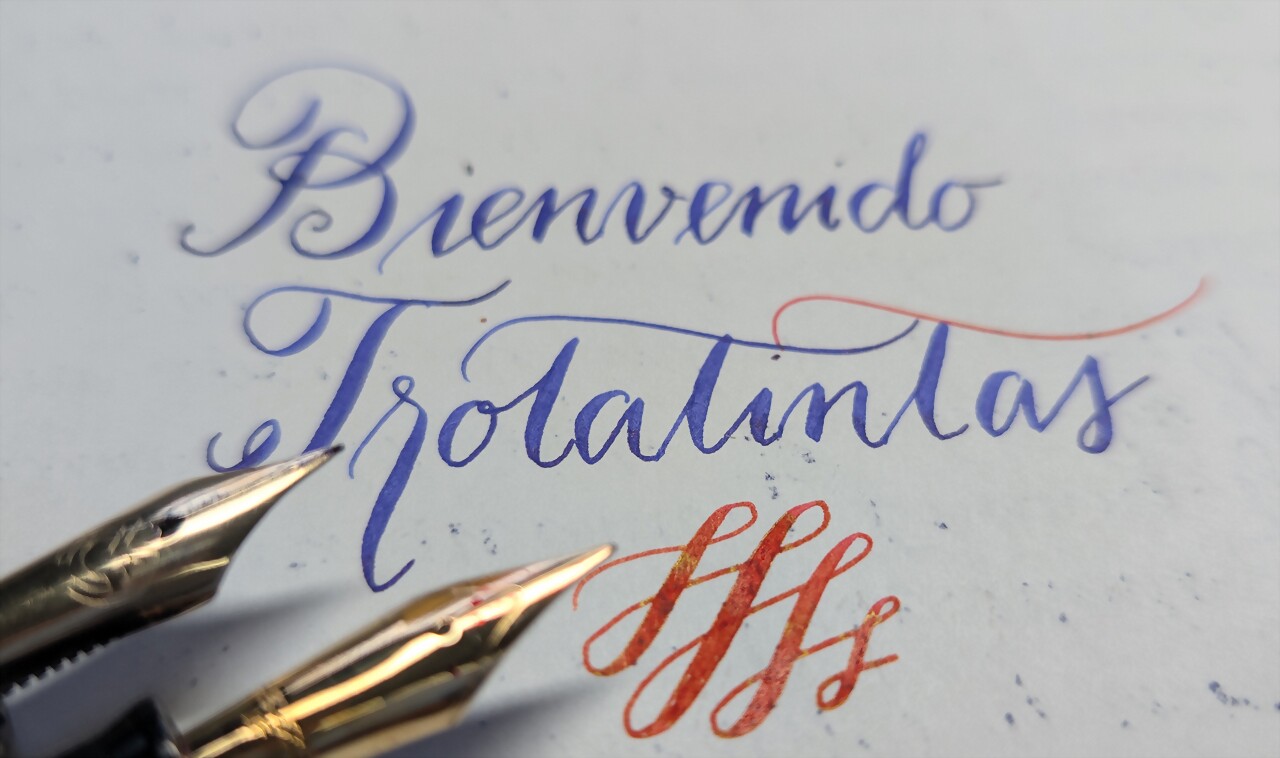 Bienvenido
Trotatintas